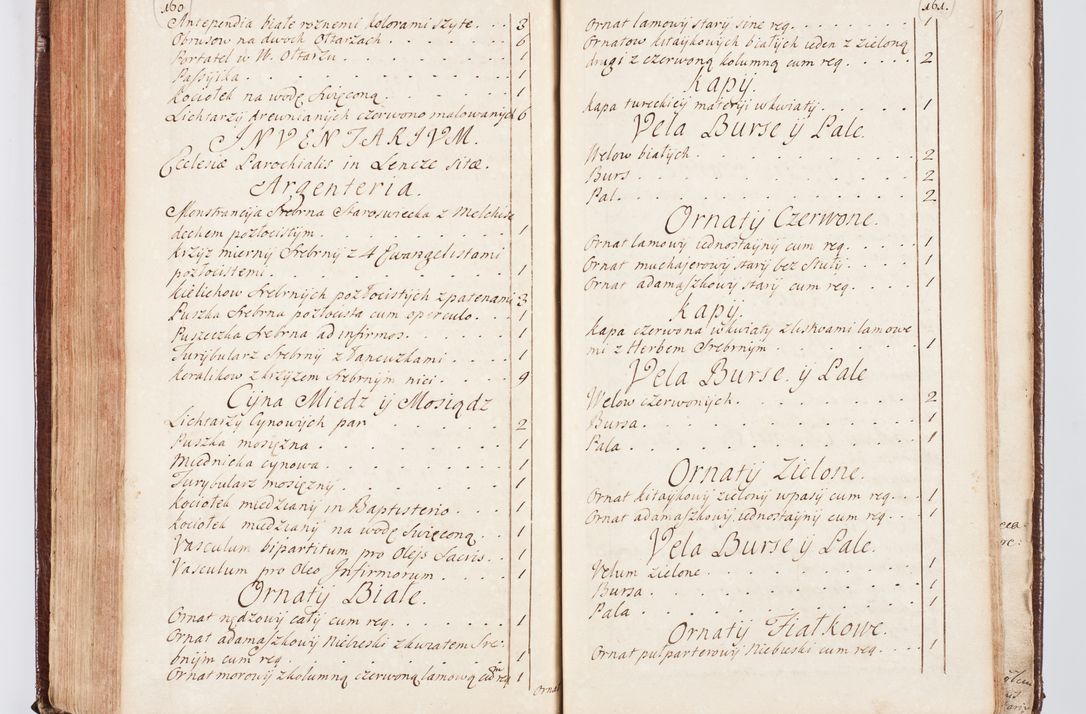 160.
Antependia białe rożnemi kolorami szyte. 3
Obrusow na dwoch Ołtarzach 6
Portatel w W. Ołtarzu 1
Passyika 1
Kociołek na wodę Swięconą 1
Lichtarzÿ drewnianÿch czerwono malowanÿch 6
INVENTARIVM.
Ecclesiæ Parochialis in Lencze sitæ.
Argenteria.
Monstrancÿa Srebrna Staroswiecka z Melchise
dechem pozłocistÿm 1
Krzÿz miernÿ Srebrnÿ z 4 Ewangelistami
pozłocistemi 1
Kielichow Srebrnÿch pozłocistÿch z patenami 3
Puszka Srebrna pozłocista cum operculo 1
Puszeczka Srebrna ad infirmos 1
Turÿbularz Srebrnÿ z Łancuzkami 1
Koralikow z krzÿzem Srebrnÿm nici 9
Cÿna Miedz ÿ Mosiądz
Lichtarzÿ Cynowÿch par 2
Puszka mosięzna 1
Miednicka cynowa 1
Turybularz mosięznÿ 1
Kociołek miedzianÿ in Baptisterio 1
Kociołek miedzianÿ na wodę Swięconą 1
Vasculum bipartitum pro Olejs Sacris 1
Vasculum pro Oleo Infirmorum 1
Ornatÿ Białe.
Ornat rządzowÿ całÿ cum req. 1
Ornat adamaszkowÿ Niebieski z kwiatem Sre
bnÿm cum req 1
Ornat morowÿ z kolumną czerwoną lamową cum req 1
Ornat
161.
Ornat lamowÿ starÿ sine req. 1
Ornatow kitaykowÿch białÿch ieden z zieloną
drugi z czerwoną kolumną cum req. 2
Kapÿ.
Kapa tureckieÿ materÿi w kwiatÿ 1
Vela Burse ÿ Pale.
Welow białÿch 2
Burs 2
Pal 2
Ornatÿ Czerwone.
Ornat lamowÿ iednostaÿnÿ cum req. 1
Ornat muchajerowÿ starÿ bez Stułÿ 1
Ornat adamaszkowÿ starÿ cum req. 1
Kapÿ.
Kapa czerwona w kwiatÿ z listwami lamowe
mi z Herbem Srebrnÿm 1
Vela Burse. ÿ Pale
Welow czerwonÿch 2
Bursa 1
Pala 1
Ornatÿ Zielone.
Ornat kitaykowÿ zielonÿ w pasÿ cum req. 1
Ornat adamaszkowÿ iednostaÿnÿ cum req. 1
Vela Burse ÿ Pale.
Velum zielone 1
Bursa 1
Pala 1
Ornatÿ Fiałkowe.
Ornat pulparterowÿ Niebieski cum req. 1